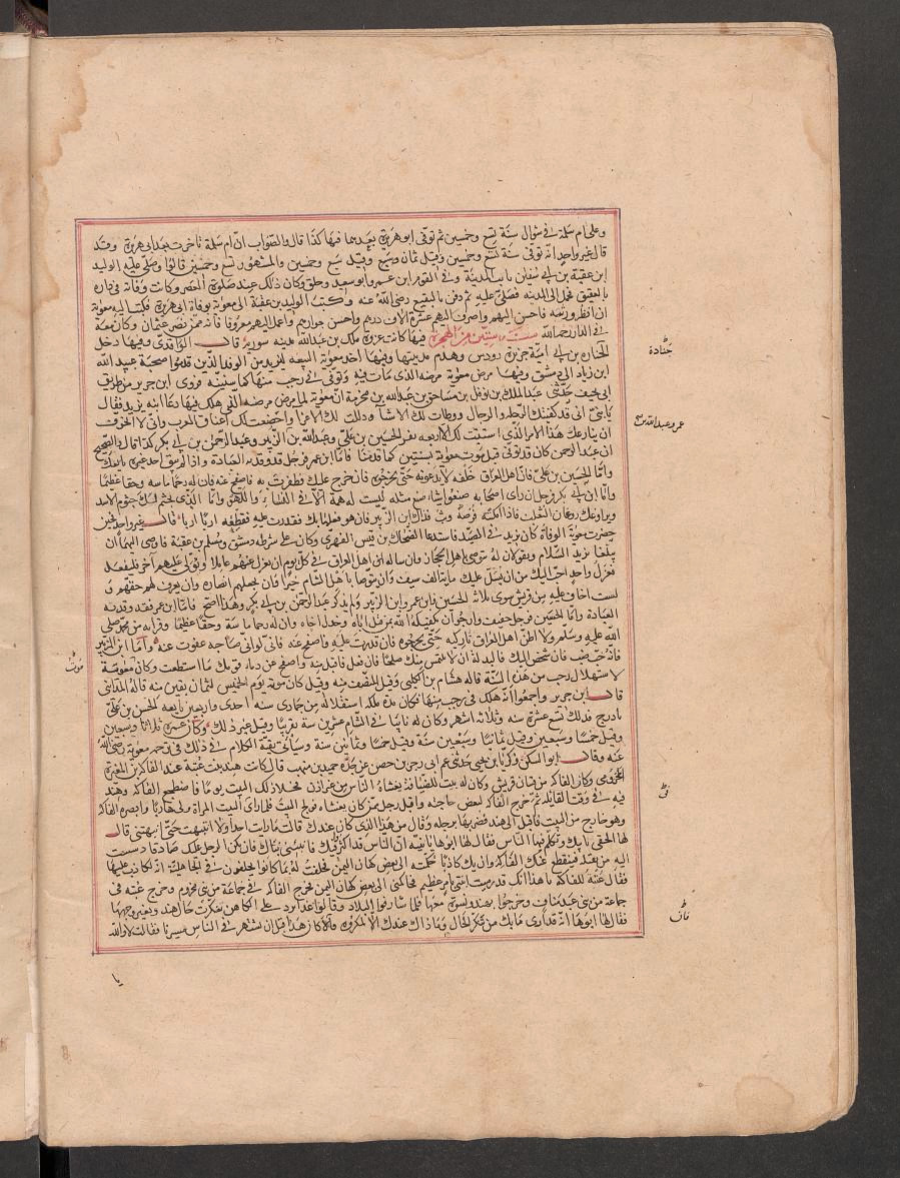 وعلى ام سلمة في شوال سنة تسع وخمسين ثم توفى ابو هريرة بعدهما فيها كذا قال والصواب ان ام سلمة تأخرت بعد ابي هريرة وقد
قال غير واحد انه توفى سنة تسع وخمسين وقيل ثمان وقيل سبع وخمسين والمشهور تسع وخمسين قالوا وصلى عليه الوليد
ابن عتبة بن ابي سفين نايب المدينة وفي القوم ابن عمر وابو سعيد وخلق وكان ذلك عند صلوة العصر وكانت وفاته في داره
بالعقيق فحمل الى المدينه فصلى عليه ثم دفن بالبقيع رضي الله عنه وكتب الوليد بن عتبة الى معوية بوفاة ابي هريرة فكتب اليه معوية
ان انظر ورثته فاحسن اليهم واصرف اليهم عشرة الاف درهم واحسن جوارهم واعمل اليهم معروفا فانه ممن نصر عثمان وكان معه
في الدار رحمهما الله سنة ستين من الهجرة فيها كانت غزوة ملك بن عبد الله مدينه سورية قال الواقدى وفيها دخل
جنادة بن ابي امية جزيرة رودس وهدم مدينتها وفيها اخذ معوية البيعه ليزيد من الوفد الذين قدموا صحبة عبيد الله
ابن زياد الى دمشق وفيها مرض معوية مرضه الذى مات فيه وتوفى في رجب منها كما سنبينه فروى ابن جرير من طريق
ابي مخنف حدثني عبد الملك بن نوفل بن مساحق بن عبد الله بن مخرمة ان معوية لما مرض مرضه التي هلك فيها دعا ابنه يزيد فقال
يا بنى انى قد كفيتك الرحلة والرجال ووطأت لك الاشيا وذللت لك الاعزا واخضعت لك اعناق العرب وانى لا اتخوف
ان ينازعك هذا الامر الذى استتب لك الا اربعه نفر الحسين بن علي وعبد الله بن عمر وعبد الله بن الزبير وعبد الرحمن بن ابي بكر كذا قال والصحيح
ان عبد الرحمن كان قد توفى قبل موت معوية بسنتين كما قدمنا فاما ابن عمر فرجل قد وقذته العبادة واذا لم يبق احد غيره بايعك
واما الحسين بن علي فان اهل العراق خلفه لا يدعونه حتى يخرجوه فان خرج عليك فظفرت به فاصفح عنه فان له رحما ماسة وحقا عظيما
واما ابن ابي بكر فرجل ان راى اصحابه صنعوا شيا صنع مثله ليست له همة الا في النساء واللهو واما الذى يجثم لك جثوم الاسد
ويراوغك روغان الثعلب فاذا امكنته فرصة وثب فذاك ابن الزبير فان هو فعلها بك فقدرت عليه فقطعه اربا اربا قال غير واحد حين
حضرت معوية الوفاة كان يزيد في الصيد فاستدعا الضحاك بن قيس الفهرى وكان على شرطة دمشق ومسلم بن عقبة فاوصى اليهما ان
يبلغا يزيد السلام ويقولان له يتوصى باهل الحجاز وان ساله اهل العراق في كل يوم ان يعزل عنهم عاملا ويولى عليهم اخر فليفعل
فعزل واحد احب اليك من ان يسل عليك ماية الف سيف وان يتوصا باهل الشام خيرا فان يجعلهم انصاره وان يعرف لهم حقهم و
لست اخاف عليه من قريش سوى ثلاث الحسين وابن عمر وابن الزبير ولم يذكر عبد الرحمن بن ابي بكر وهذا اصح فاما ابن عمر فقد وقذته
العبادة واما الحسين فرجل خفيف وارجو ان يكفيكه الله بمن قتل اباه وخذل اخاه وان له رحما ماسة وحقا عظيما وقرابه من محمد صلى
الله عليه وسلم ولا اظن اهل العراق تاركيه حتى يخرجوه فان قدرت عليه فاصفح عنه فانى لو انى صاحبه عفوت عنه واما ابن الزبير
فانه خب ضب فان شخص اليك فالبد له الا ان يلتمس منك صلحا فان فعل فاقبل منه واصفح عن دماء قومك ما استطعت وكان موت معوية
لاستهلال رجب من هذه السنة قاله هشام بن الكلبي وقيل للنصف منه وقيل كان موته يوم الخميس لثمان بقين منه قاله المدايني
قال ابن جرير واجمعوا انه هلك في رجب منها فكان مدة ملكه استقلالا من جمادى سنه احدى واربعين بايعه الحسن بن علي
باذرح فذلك تسع عشرة سنه وثلاثة اشهر وكان له نايبا في الشام عشرين سنة تقريبا وقيل غير ذلك وكان عمره ثلاثا وسبعين
وقيل خمسا وسبعين وقيل ثمانيا وسبعين سنة وقيل خمسا وثمانين سنة وسيأتي بقية الكلام في ذلك في ترجمة معوية رضي الله
عنه وقال ابو السكن زكريا بن يحيى حدثني عم ابي زحر بن حصن عن جده حميد بن منهب قال كانت هند بنت عتبة عند الفاكه بن المغيرة
المخزومى وكان الفاكه من فتيان قريش وكان له بيت للضيافة يغشاه الناس من غير اذن فخلا ذلك البيت يوما فاضطجع الفاكه وهند
فيه في وقت القايله ثم خرج الفاكه لبعض حاجته واقبل رجل ممن كان يغشاه فولج البيت فلما راى المراة ولى هاربا وابصره الفاكه
وهو خارج من البيت فاقبل الى هند فضربها برجله وقال من هذا الذى كان عندك قالت ما رايت احدا ولا انتبهت حتى انبهتني قال
لها الحقى بابيك وتكلم فيها الناس فقال لها ابوها يا بنيه ان الناس قد اكثروا فيك فانبئيني نباك فان يكن الرجل عليك صادقا دسست
اليه من يقتله فينقطع عنك القالة وان يك كاذبا حاكمته الى بعض كهان اليمن فحلفت له بما كانوا يحلفون في الجاهلية انه لكاذب عليها
فقال عتبة للفاكه يا هذا انك قد رميت ابنتي بامر عظيم فحاكمني الى بعض كهان اليمن فخرج الفاكه في جماعة من بني مخزوم وخرج عتبه في
جماعة من بني عبد مناف وخرجوا بهند ونسوة معها فلما شارفوا البلاد وقالوا غدا نرد على الكاهن تنكرت حال هند وتغير وجهها
فقال لها ابوها انى قد ارى ما بك من تنكر الحال وما ذاك عندك الا لمكروه فالا كان هذا قبل ان يشتهر في الناس مسيرنا فقالت لا والله
جنادة
عمر وعبد الله بن
موت
في
فان
يا